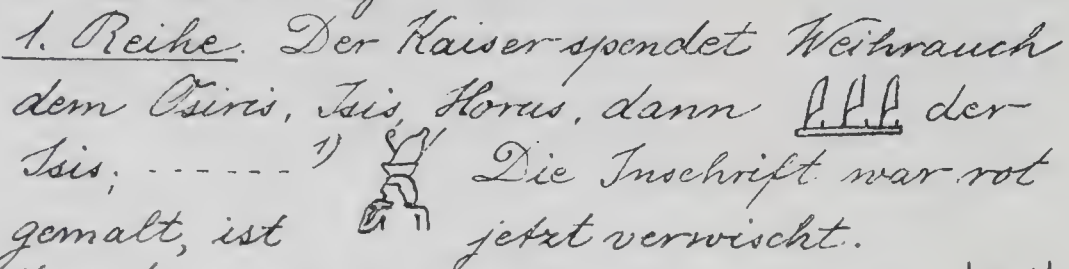 1. Reihe. Der Kaiser spendet Weihrauch
dem Osiris, Isis, Horus, dann 𓇏 der
Isis; ------ 1) Die Inschrift war rot
gemalt, ist jetzt verwischt.